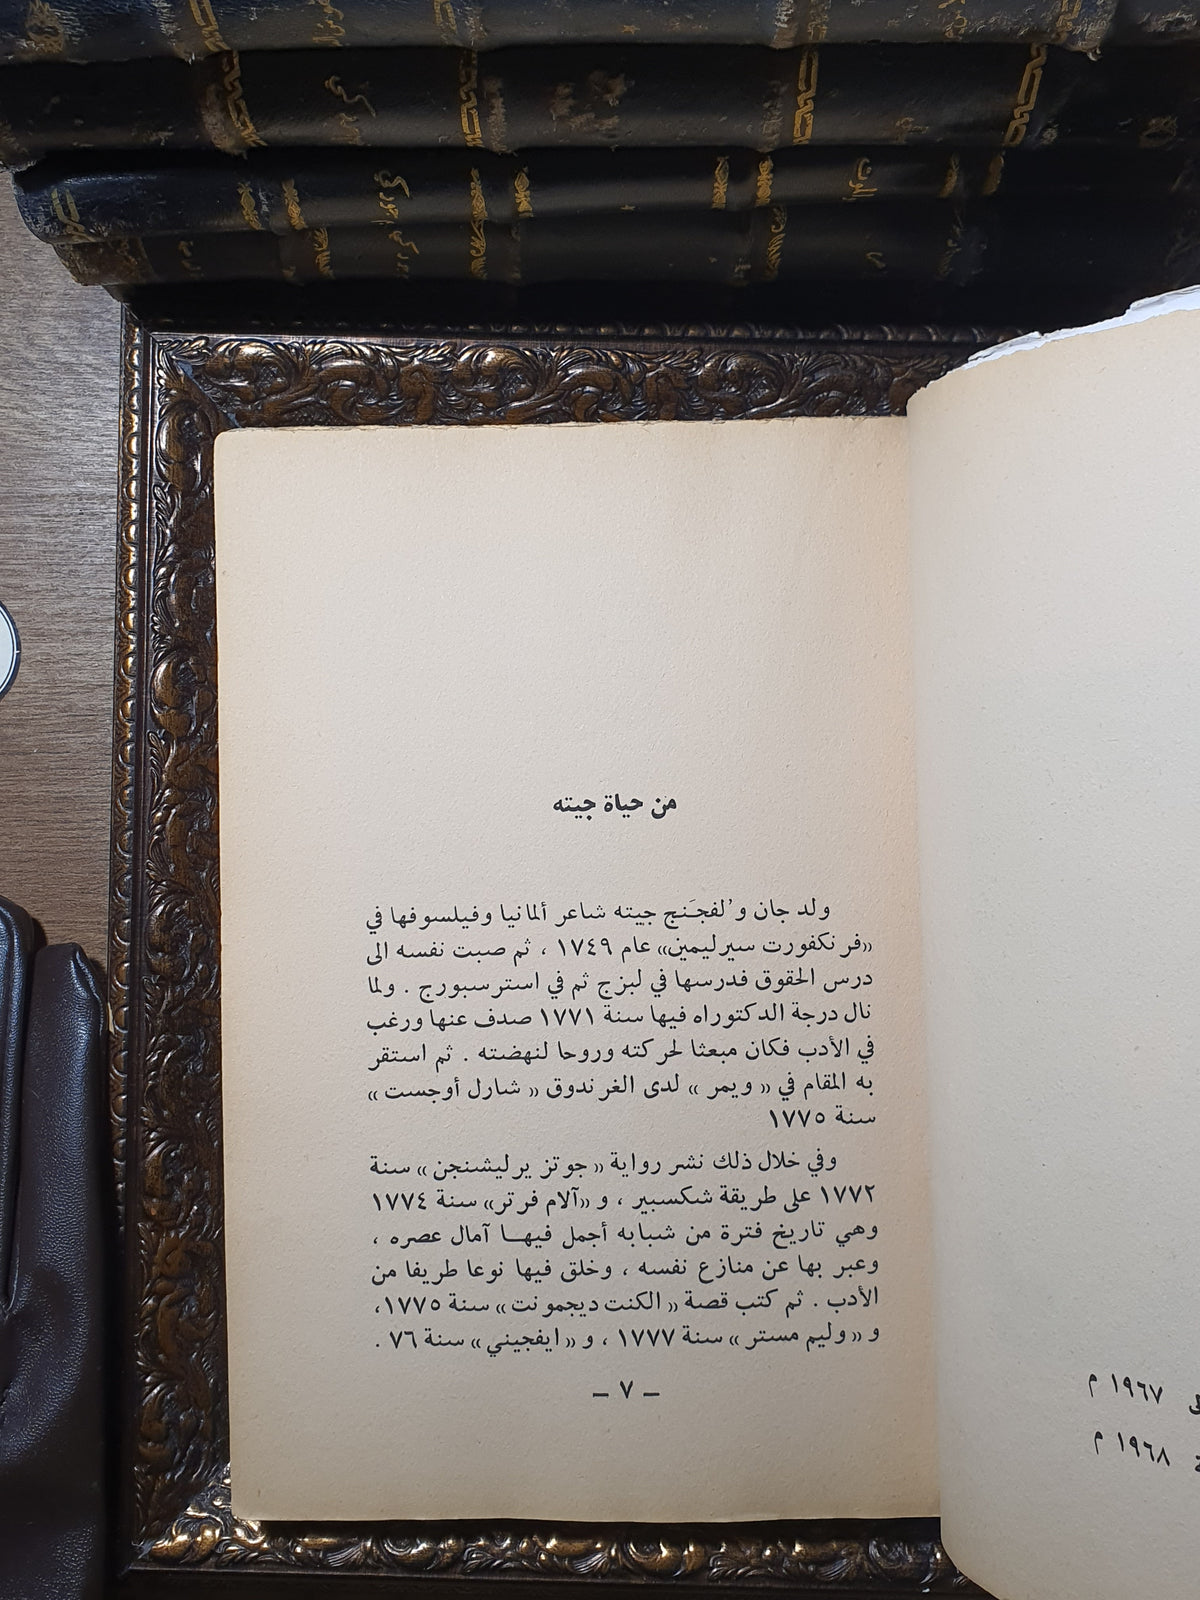 ١٩٦٧ م
١٩٦٨ م
من حياة جيته
ولد جان و'لفجَنج جيته شاعر ألمانيا وفيلسوفها في
«فرنكفورت سيرليمين» عام ١٧٤٩ ، ثم صبت نفسه الى
درس الحقوق فدرسها في لبزج ثم في استرسبورج . ولما
نال درجة الدكتوراه فيها سنة ١٧٧١ صدف عنها ورغب
في الأدب فكان مبعثا لحركته وروحا لنهضته . ثم استقر
به المقام في « ويمر » لدى الغرندوق « شارل أوجست »
سنة ١٧٧٥
وفي خلال ذلك نشر رواية « جوتز يرليشنجن » سنة
١٧٧٢ على طريقة شكسبير ، و «آلام فرتر» سنة ١٧٧٤
وهي تاريخ فترة من شبابه أجمل فيهـا آمال عصره ،
وعبر بها عن منازع نفسه ، وخلق فيها نوعا طريفا من
الأدب . ثم كتب قصة « الكنت ديجمونت » سنة ١٧٧٥،
و « وليم مستر » سنة ١٧٧٧ ، و « ايفجيني » سنة ٧٦ .
— ٧ —